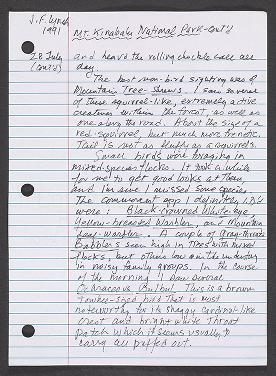 J.F. Lynch
1991
Mt. Kinabalu National Park - cont'd
28 July
(cont'd)
and heard the rolling chuckle call all
day.
The best non-bird sighting was of
Mountain Tree-Shrews. I saw several
of these squirrel-like, extremely active
creatures within the forest, as well as
one along the road. About the size of a
red squirrel, but much more frenetic.
Tail is not as fluffy as a squirrel's.
Small birds were foraging in
mixed-species flocks. It took a while
for me to get good looks at them
and I'm sure I missed some species.
The commonest spp I definitely I.D.'d
were: Black-crowned White-eye,
Yellow-breasted Warbler, and Mountain
Leaf-warbler. A couple of Gray-throated
Babblers seen high in trees with mixed
flocks, but others low in the understory
in noisy family groups. In the course
of the morning I saw several
Ochraceous Bulbul. This is a brown
Towhee-sized bird that is most
noteworthy for its shaggy cardinal-like
crest and bright white throat
patch which it seems usually to
carry all puffed out.